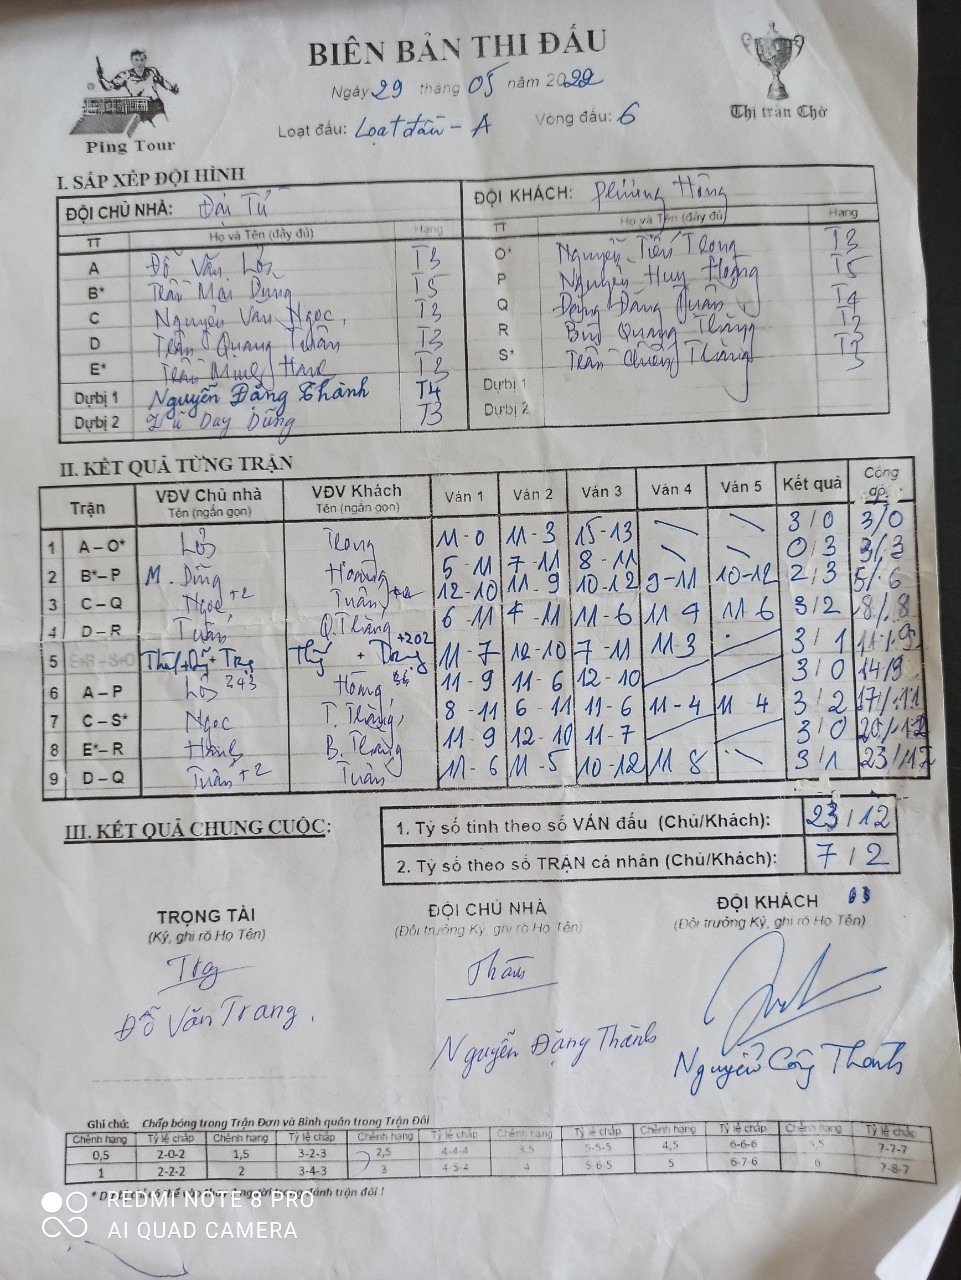 BIÊN BẢN THI ĐẤU
Ngày 29 tháng 05 năm 2022
Loạt đấu: Loạt đấu - A Vòng đấu: 6
Ping Tour
Thị trấn Chờ
I. SẮP XẾP ĐỘI HÌNH
ĐỘI CHỦ NHÀ: Đài Tử ĐỘI KHÁCH: Phùng Hồng
TT Họ và Tên (đầy đủ) Hạng TT Họ và Tên (đầy đủ) Hạng
A Đỗ Văn T3 O* Nguyễn Tiến Trong T3
B* Trần Mai Dung T5 P Nguyễn Huy Hoàng T5
C Nguyễn Văn Ngọc T3 Q Đặng Đăng Quân T4
D Trần Quang Tuân T3 R Bùi Quang Thắng T3
E* Trần Minh T3 S* Trần Thắng T3
Dự bị 1 Nguyễn Đặng Thành T4 Dự bị 1
Dự bị 2 Vũ Duy Dũng T3 Dự bị 2
II. KẾT QUẢ TỪNG TRẬN
Trận VĐV Chủ nhà Tên (ngắn gọn) VĐV Khách Tên (ngắn gọn) Ván 1 Ván 2 Ván 3 Ván 4 Ván 5 Kết quả Cộng dồn
1 A – O* Trong 11-0 11-3 15-13 3/0 3/0
2 B* – P M. Dũng Hoàng 5-11 7-11 8-11 0/3 3/3
3 C – Q Ngọc +2 Tuân 12-10 11-9 10-12 9-11 10-12 2/3 5/6
4 D – R Tuân Q. Thắng 6-11 4-11 11-6 11 9 11 6 3/2 8/8
5 11-7 12-10 7-11 11-3 3/1 11/9
6 A – P Hoàng 11-9 11-6 12-10 3/0 14/9
7 C – S* Ngọc T. Thắng 8-11 6-11 11-6 11-4 11 4 3/2 17/11
8 E* – R B. Thắng 11-9 12-10 11-7 3/0 20/
9 D – Q Tuân +2 Tuân 11-6 11-5 10-12 11 8 3/1 23/12
III. KẾT QUẢ CHUNG CUỘC:
1. Tỷ số tính theo số VÁN đấu (Chủ/Khách): 23/12
2. Tỷ số theo số TRẬN cá nhân (Chủ/Khách): 7/2
TRỌNG TÀI ĐỘI CHỦ NHÀ ĐỘI KHÁCH
(Ký, ghi rõ Họ Tên) (Đội trưởng Ký, ghi rõ Họ Tên) (Đội trưởng Ký, ghi rõ Họ Tên)
Trg
Đỗ Văn Trang. Nguyễn Đặng Thành Nguyễn Công Thành
Ghi chú: Chấp bóng trong Trận Đơn và Bình quân trong Trận Đôi
Chênh hạng Tỷ lệ chấp Chênh hạng Tỷ lệ chấp Chênh hạng Tỷ lệ chấp Chênh hạng Tỷ lệ chấp Chênh hạng Tỷ lệ chấp Chênh hạng Tỷ lệ chấp
0,5 2-0-2 1,5 3-2-3 2,5 4-4-4 3,5 5-5-5 4,5 6-6-6 5,5 7-7-7
1 2-2-2 2 3-4-3 3 4-5-4 4 5-6-5 5 6-7-6 6 7-8-7
REDMI NOTE 8 PRO
AI QUAD CAMERA